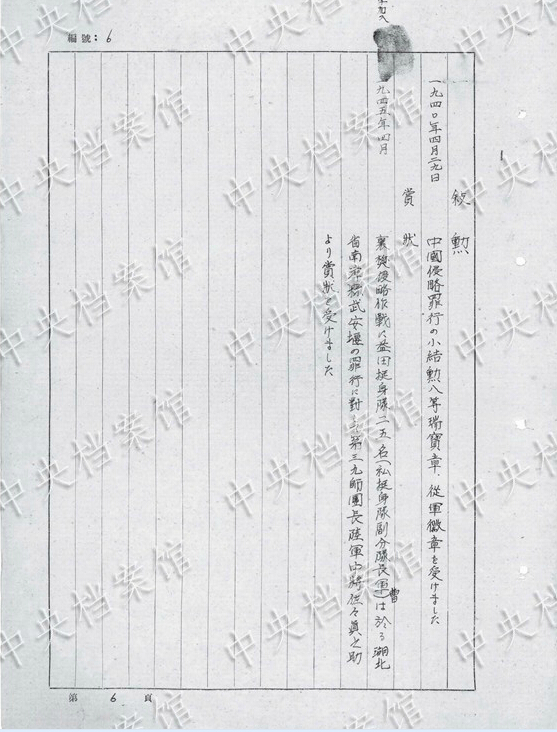 編號：6
敘勲
一九四〇年四月二九日
中國侵略罪行の小結勲八等瑞寶章、從軍徽章を受けました
賞狀
一九四五年四月
襄樊侵略作戰に益田挺身隊二五名（私挺身隊副分隊長（軍曹）は於る湖北
省南漳縣武安堰の罪行に對し第三九師團長陸軍中將佐々眞之助
より賞狀を受けました
第 6 頁
中央档案馆